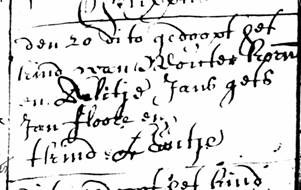 den 20 dito gedoopt het
kind van Wouter
en Aeltje Jans gets
Jan floore en
tkind
het kind